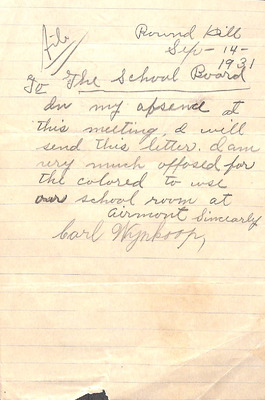 file
Round Hill
Sep- 14-
1931
To The School Board
In my absend at
this meeting, I will
send this letter. I am
very much opposed for
the colored to use
our school room at
Airmont Sincearly
Carl Wynkoop,